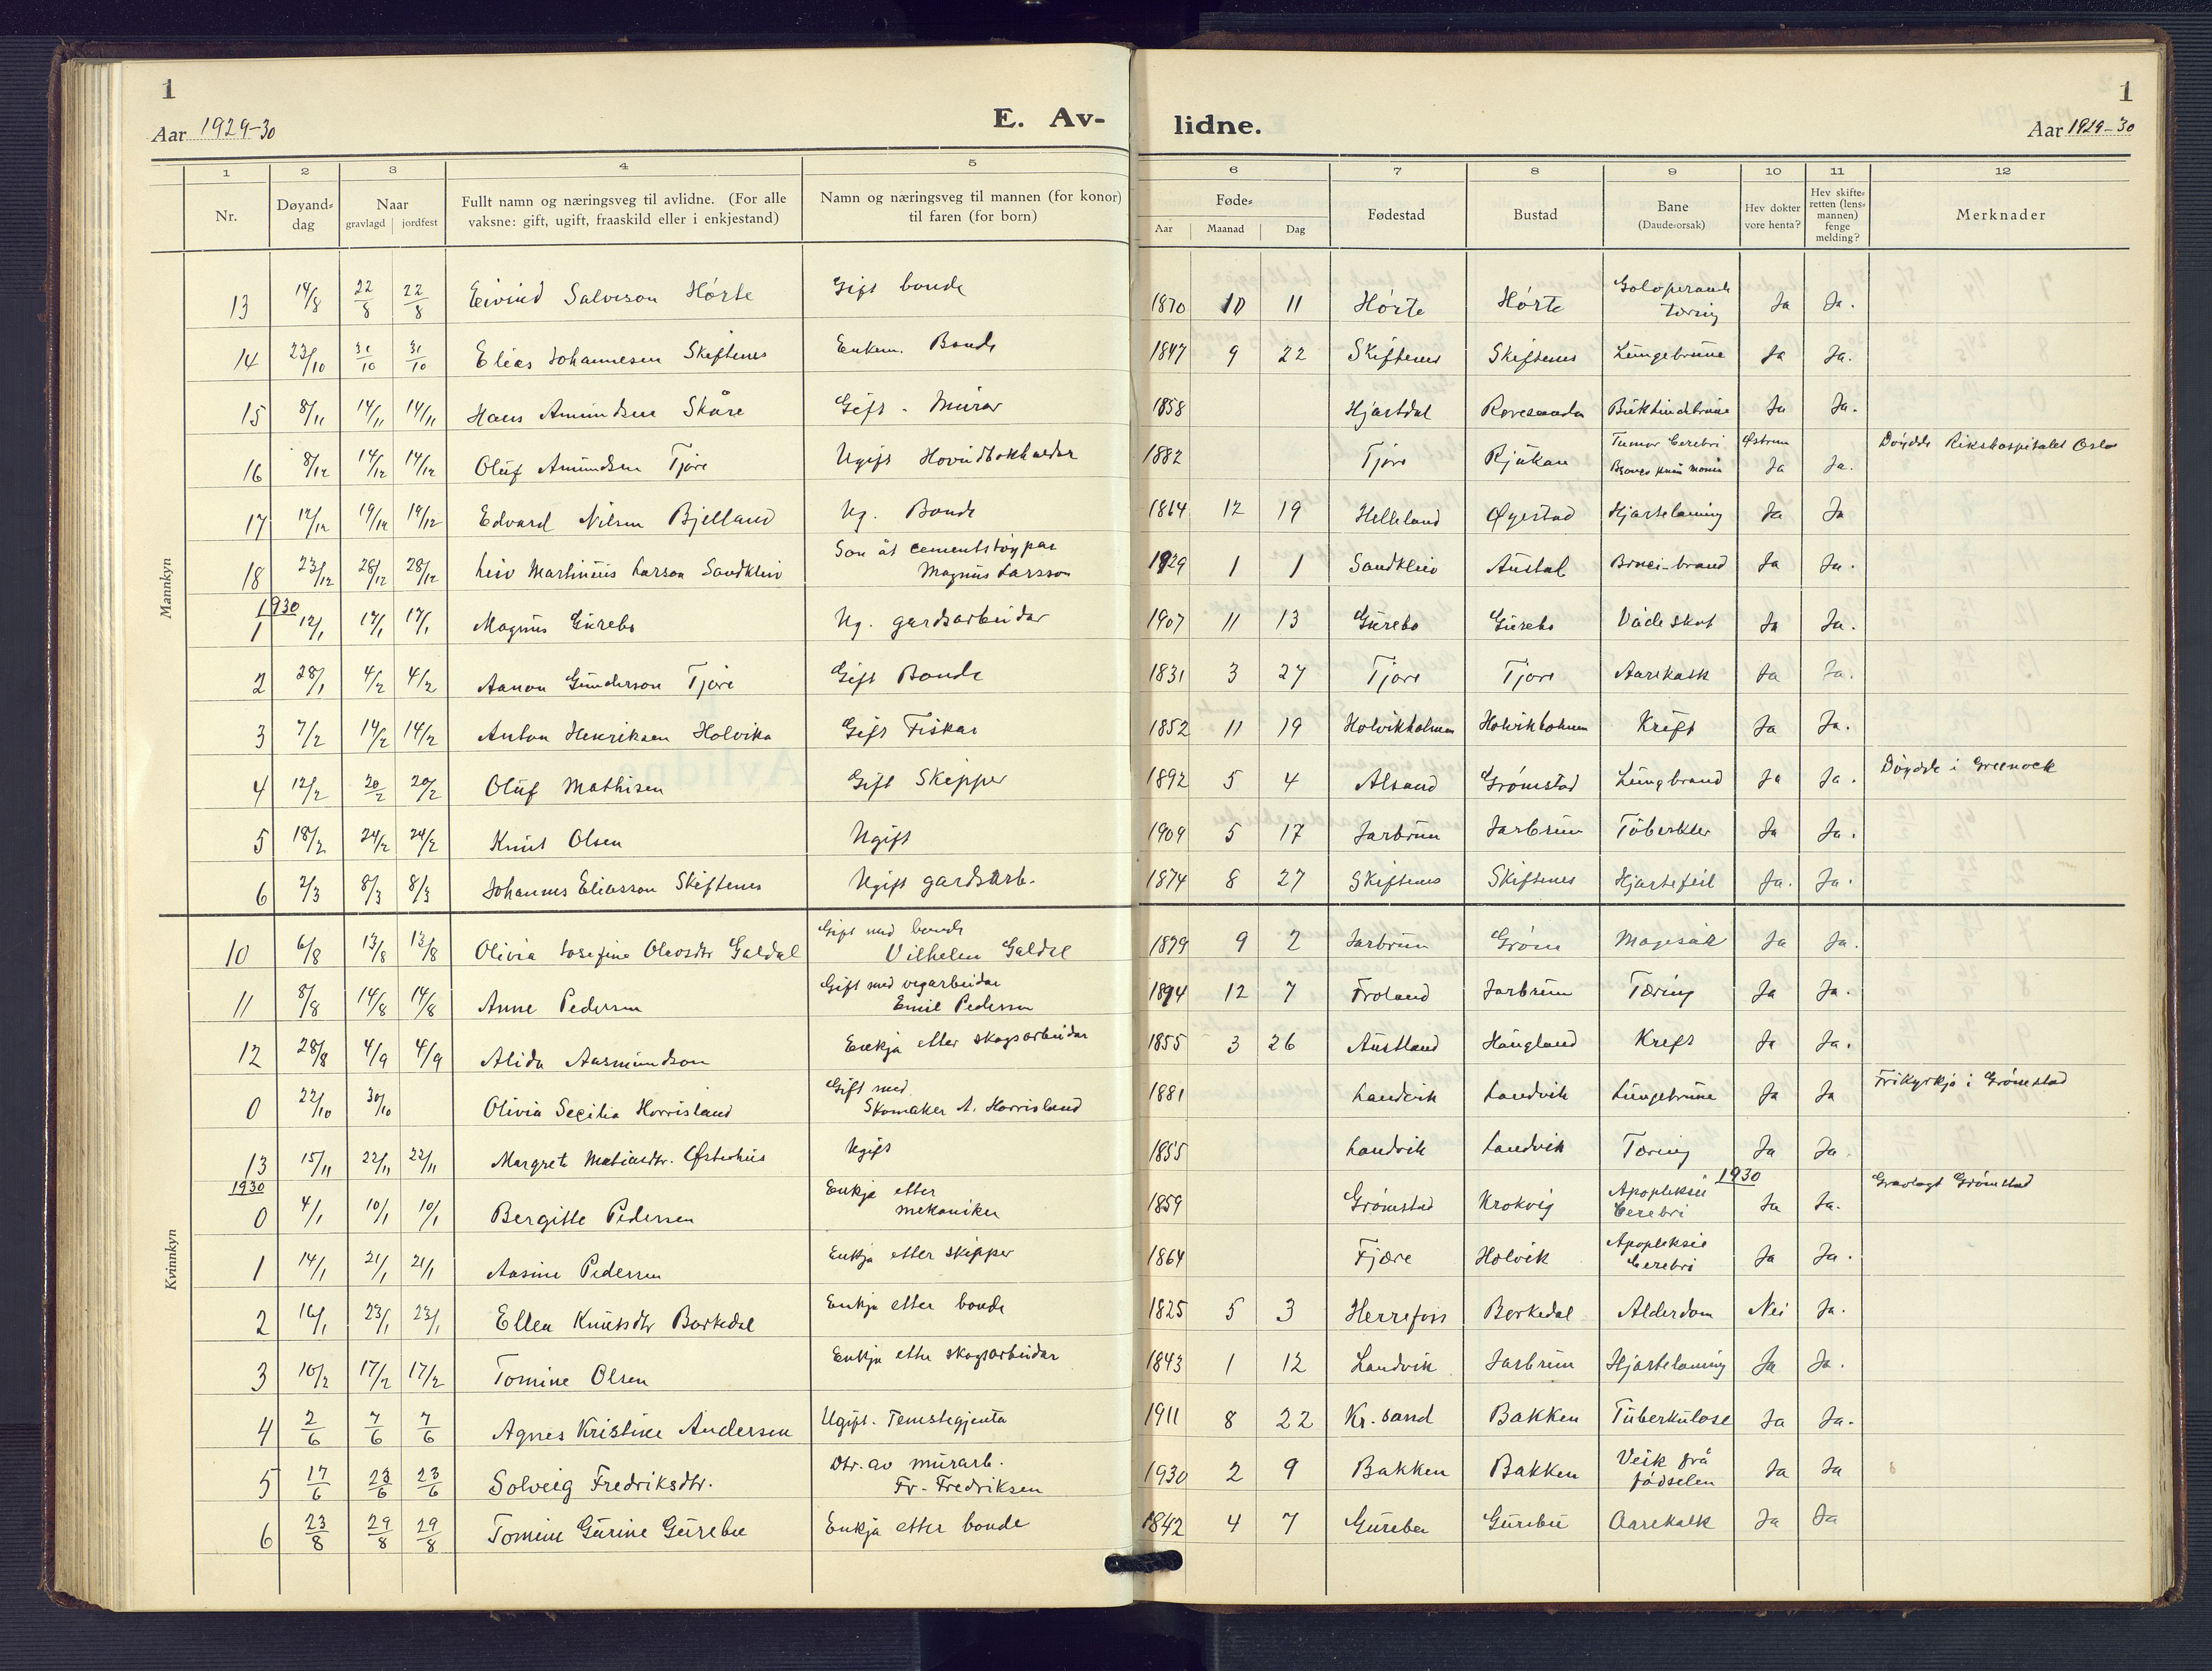 1
1
Aar 1929-30
E. Av-
lidne.
Aar 1929-30
1 2 3 4 5 6 7 8 9 10 11 12
Nr. Døyand-dag Naar gravlagd jordfest Fullt namn og næringsveg til avlidne. (For alle vaksne: gift, ugift, fraaskild eller i enkjestand) Namn og næringsveg til mannen (for konor) til faren (for born) Føde- Aar Maanad Dag Fødestad Bustad Bane (Daude-orsak) Hev dokter vore henta? Hev skifte-retten (lens-mannen) fenge melding? Merknader
Mannkyn
13 14/8 22/8 22/8 Eivind Salveson Hørte Gift bonde 1870 10 11 Hørte Hørte tæring Ja Ja.
14 23/10 31/10 31/10 Elias Johannesen Skiftenes Enkem. Bonde 1847 9 22 Skiftenes Skiftenes Lungebrune Ja Ja.
15 8/11 14/11 14/11 Hans Amundsen Skåre Gift. Murar 1858 Hjartdal Roresanden Bukhindebrune Ja Ja.
16 8/12 14/12 14/12 Oluf Amundsen Tjøre Ugift Hovudbokhaldar 1882 Tjøre Rjukan Tumor Cerebri Ja Ja. Døydde Rikshospitalet Oslo
17 12/12 19/12 19/12 Edvard Nilsen Bjelland Ug. Bonde 1864 12 19 Helleland Øyestad Hjartelaming Ja Ja
18 23/12 28/12 28/12 Leiv Martinius Larson Sandkleiv Son åt cementstøypar Magnus Larsson 1929 1 1 Sandkleiv Austal Ja Ja.
1930
1 12/1 17/1 17/1 Magnus Gurebo Ug. gardsarbeidar 1907 11 13 Gurebo Gurebo Vådeskot Ja Ja.
2 28/1 4/2 4/2 Aanon Gunderson Tjøre Gift Bonde 1831 3 27 Tjøre Tjøre Aarekalk Ja Ja.
3 7/2 14/2 14/2 Anton Henriksen Holvika Gift Fiskar 1852 11 19 Holvikholmen Holvikholmen Kreft Ja Ja.
4 12/2 20/2 20/2 Oluf Mathisen Gift Skipper 1892 5 4 Alsand Grømstad Lungbrand Ja Ja. Døydde i Greenock
5 18/2 24/2 24/2 Knut Olsen Ugift 1909 5 17 Jarbrun Jarbrun Ja Ja.
6 2/3 8/3 8/3 Johannes Eliasson Skiftenes Ugift gardsarb. 1874 8 27 Skiftenes Skiftenes Hjartefeil Ja. Ja.
Kvinnkyn
10 6/8 13/8 13/8 Olivia Josefine Olavsdtr Galdal Gift med bonde Vilhelm Galdal 1879 9 2 Jarbrun Grøm Magesår Ja Ja.
11 8/8 14/8 14/8 Anne Pedersen Gift med vegarbeidar Emil Pedersen 1894 12 7 Froland Jarbrun Tæring Ja Ja.
12 28/8 4/9 4/9 Alida Aasmundson Enkja etter skogsarbeidar 1855 3 26 Austland Haugland Kreft Ja Ja.
0 22/10 30/10 Olivia Secilia Horrisland Gift med Skomaker A. Horrisland 1881 Landvik Landvik Lungebrune Ja Ja Frikyrkja i Grømstad
13 15/11 22/11 22/11 Margrete Matiasdtr. Østerhus Ugift 1855 Landvik Landvik Tæring Ja Ja.
1930 1930
0 4/1 10/1 10/1 Bergitte Pedersen Enkja etter mekaniker 1859 Grømstad Krokvig Apopleksie Cerebri Ja Ja. Gravlagt Grømstad
1 14/1 21/1 21/1 Aasine Pedersen Enkja etter skipper 1864 Fjære Holvik Apopleksie Cerebri Ja Ja.
2 16/1 23/1 23/1 Ellen Knutsdtr Borkedal Enkja etter bonde 1825 5 3 Herrefoss Borkedal Alderdom Nei Ja.
3 10/2 17/2 17/2 Tomine Olsen Enkja etter skogsarbeidar 1843 1 12 Landvik Jarbrun Hjartelaming Ja Ja.
4 2/6 7/6 7/6 Agnes Kristine Andersen Ugift. Tenestegjenta 1911 8 22 Kr.sand Bakken Tuberkulose Ja Ja.
5 17/6 23/6 23/6 Solveig Fredriksdtr. Dtr. av murarb. Fr. Fredriksen 1930 2 9 Bakken Bakken Veik frå fødselen Ja Ja
6 23/8 29/8 29/8 Tomine Gurine Gurebu Enkja etter bonde 1842 4 7 Gurebu Gurebu Aarekalk Ja Ja